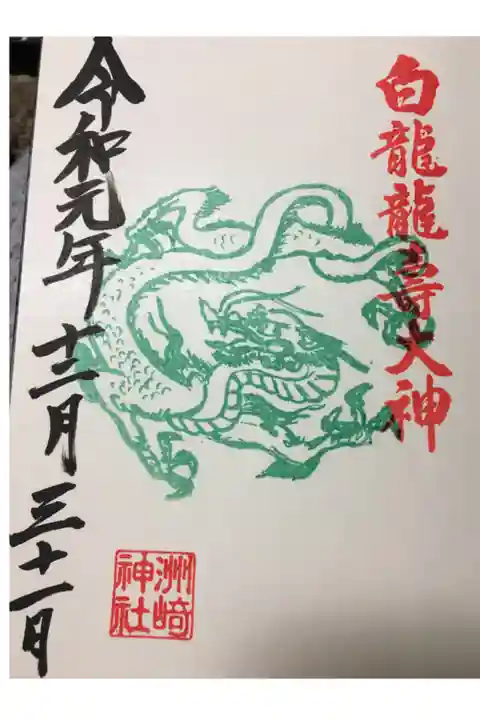 白龍龍寿大神
令和元年十二月三十一日
洲崎
神社